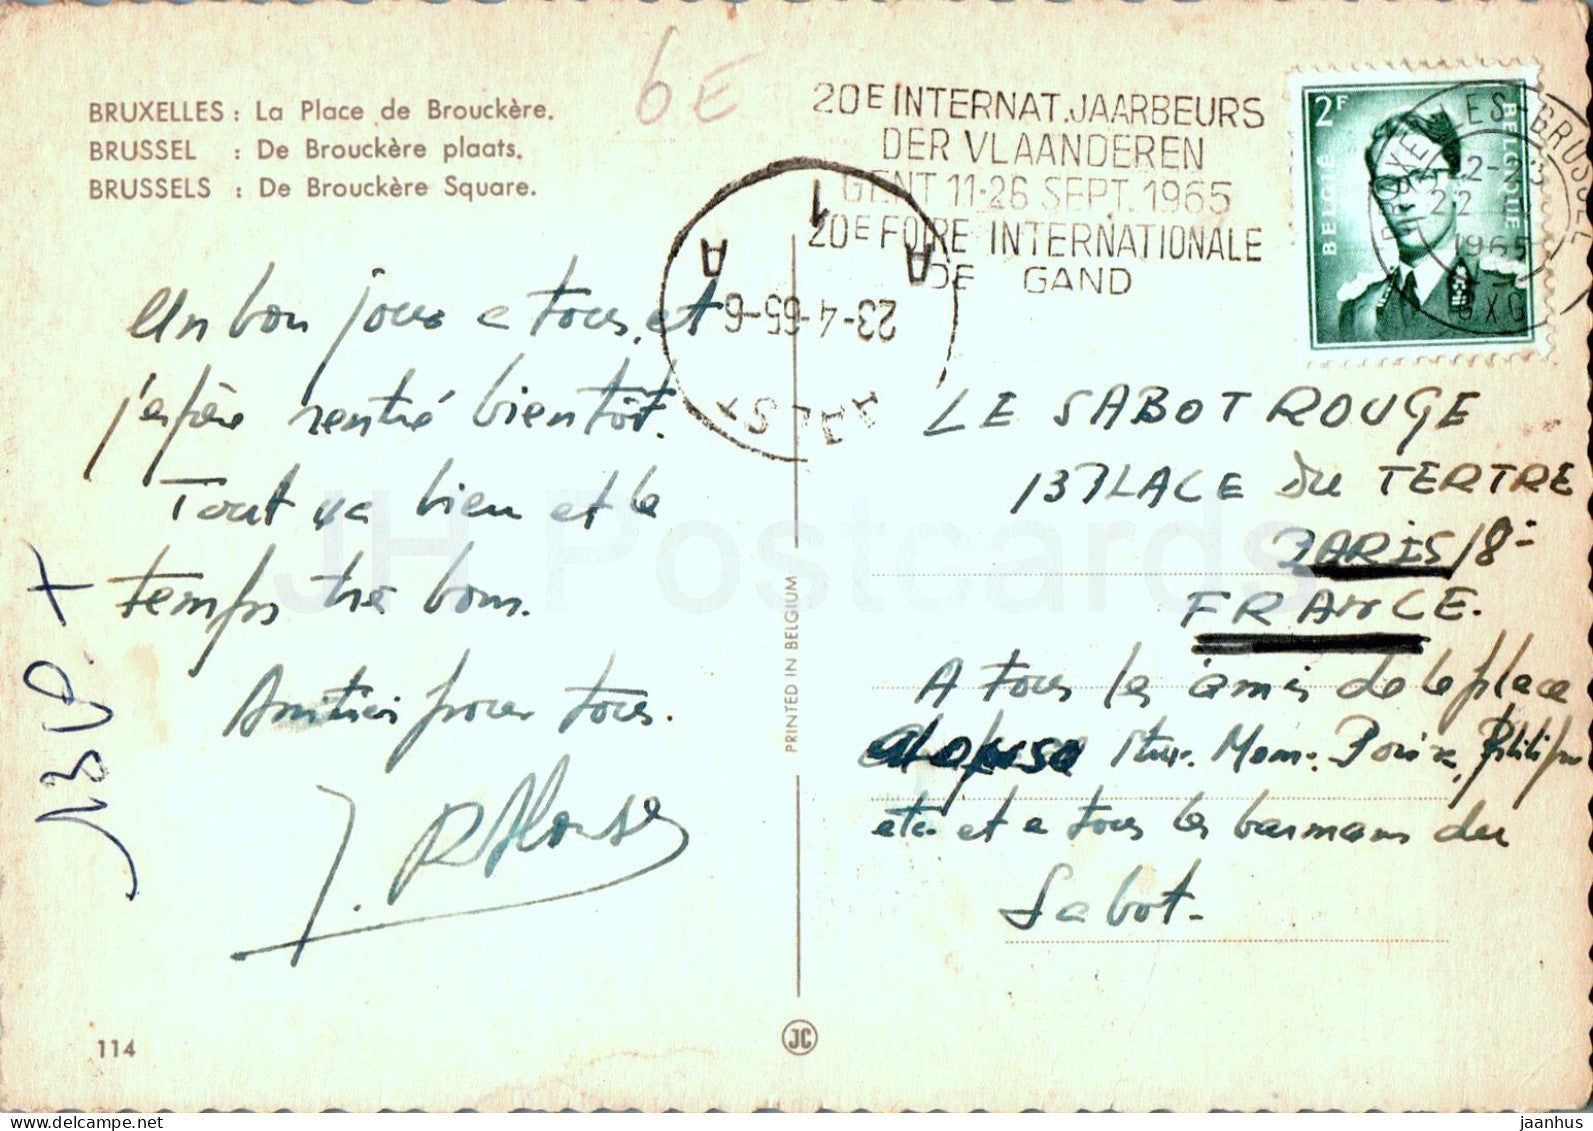 BRUXELLES : La Place de Brouckère.
BRUSSEL : De Brouckère plaats.
BRUSSELS : De Brouckère Square.
6E
20E INTERNAT. JAARBEURS
DER VLAANDEREN
GENT 11-26 SEPT. 1965
20E FOIRE INTERNATIONALE
DE GAND
2F
BELGIË
BELGIQUE
BRUXELLES-BRUSSEL
22
1965
1
A A
23-4-65-6
Un bon jour a tous, et
j'espère rentré bientôt.
Tout va bien et le
temps tré bon.
Amitiés pour tous.
J. R Alonso
LE SABOT ROUGE
13 PLACE DU TERTRE
PARIS 18
FRANCE.
A tous les amis de la place
Alonso Mom.
etc et a tous les barmans du
Sabot.
PRINTED IN BELGIUM
114
JC
JH Postcards
jaanhus